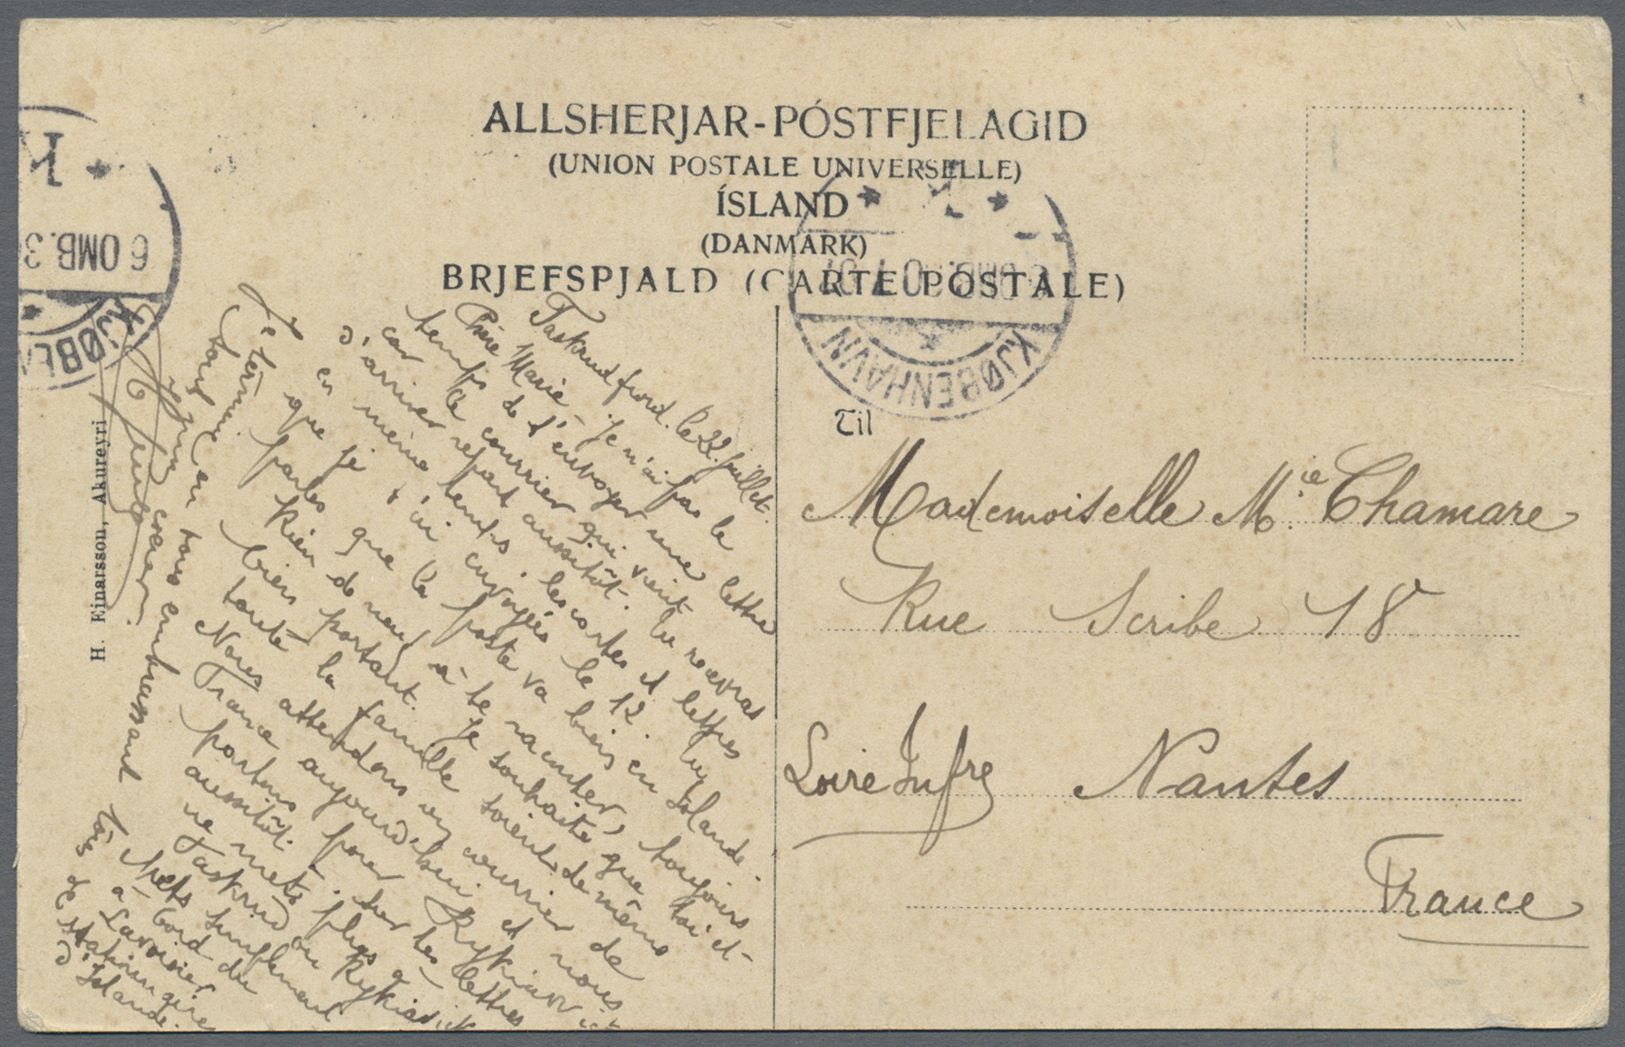 ALLSHERJAR-PÓSTFJELAGID
(UNION POSTALE UNIVERSELLE)
ÍSLAND
(DANMARK)
BRJEFSPJALD (CARTE POSTALE)
K
6 OMB. 3
KJØBE
K
OMB.
KJØBENHAVN
Til
Mademoiselle Mie. Chamare
Rue Scribe 18
Loire Infre Nantes
France
H. Einarsson, Akureyri
Faskrud fiord. le 22 juillet.
Chère Marie - Je n'ai pas le
temps de t'envoyer une lettre
car le courrier qui vient
d'arriver repart aussitôt. tu recevras
en même temps les cartes et lettres
que je t'ai envoyées le 12. tu
parles que la poste va bien en Islande.
Rien de neuf à te raconter, toujours
bien portant. Je souhaite que toi et
toute la famille soient de même
Nous attendons un courrier de
France aujourd'hui et nous
partons pour Rykiavick
aussitôt.
ne mets plus sur tes lettres
Faskrud ou Rykiavick
Mets simplement
à bord du
Lavoisier
Stationnaire
d'Islande.
Je termine en
embrassant tous